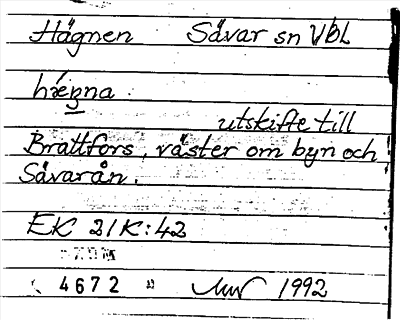 Hägnen Sävar sn VBL
hægna
utskifte till
Brattfors, väster om byn och
Sävarån.
EK 21K:42
4672 1992